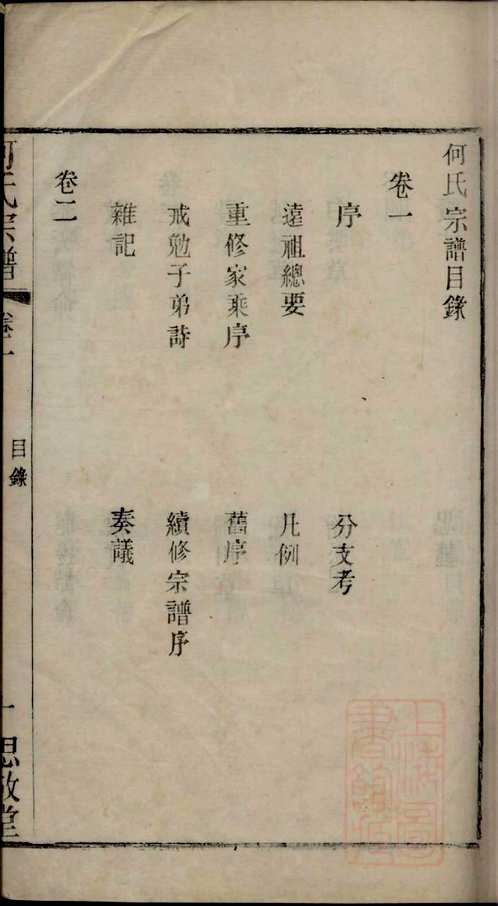 何氏宗譜目錄
卷一
序　分支考
遠祖總要　凡例
重修家乘序　舊序
戒勉子弟詩　續修宗譜序
雜記　奏議
卷二
何氏宗譜　卷一　目錄　一　思敬堂
上海圖書館藏